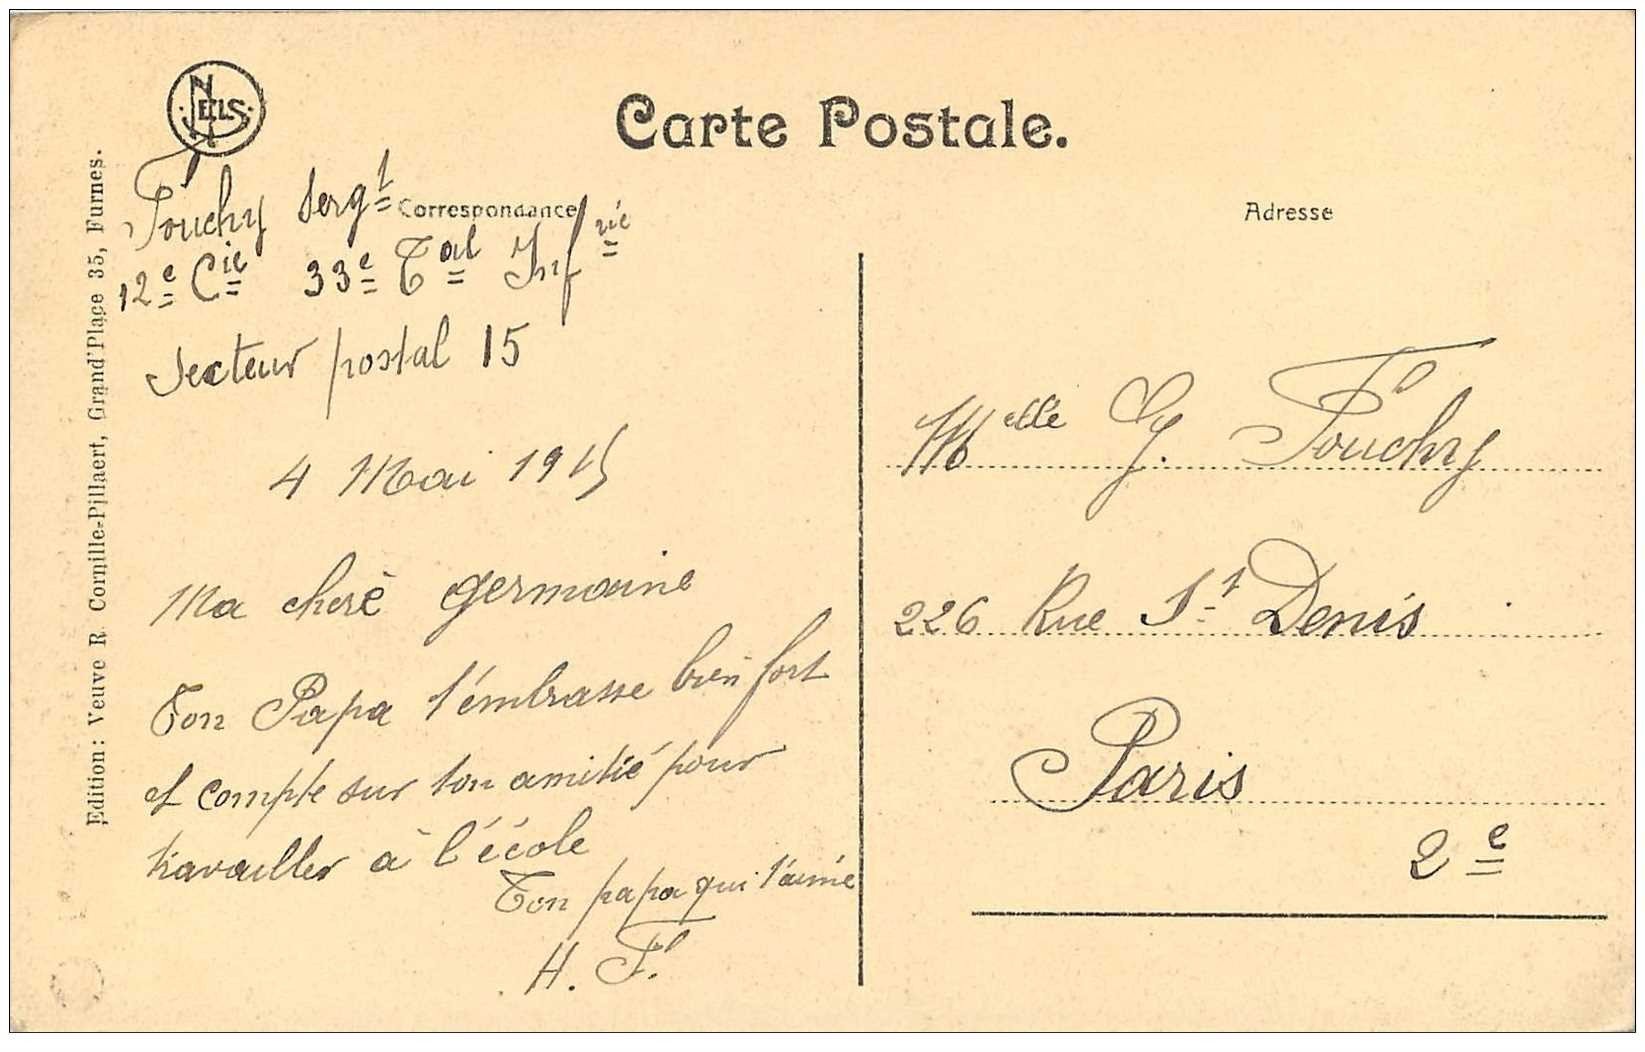 NELS
Carte Postale.
Correspondance
Adresse
Edition: Veuve R. Cornille-Pillaert, Grand'Place 35, Furnes.
Fouchy Sergt
12e Cie 33e Tal Infrie
Secteur postal 15
4 Mai 1915
Ma chere germaine
Ton Papa t'embrasse bien fort
et compte sur ton amitié pour
travailler à l'école
Ton papa qui t'aime
H. F.
Melle G. Fouchy
226 Rue St Denis
Paris
2e